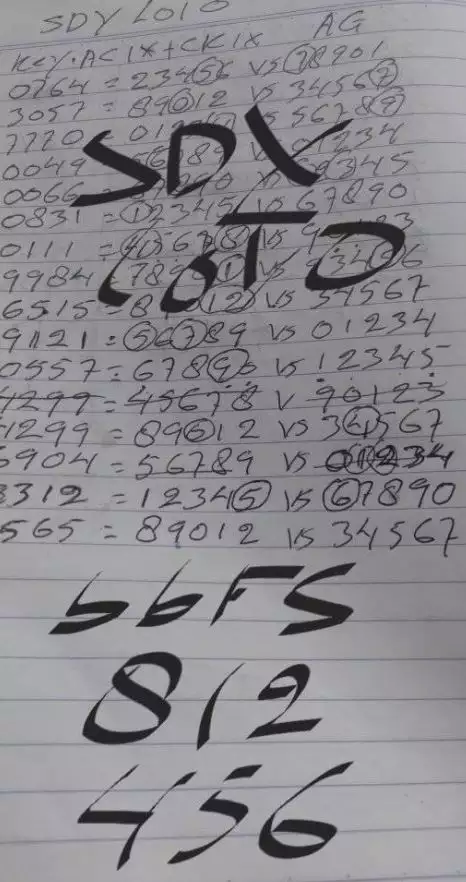 SDY LOTO AG
KEY.AC IX+CK IX
0764 = 23456 VS 78901
3057 = 89012 VS 34567
7770 = 01 VS 56789
0049 789 01234
0066 = 345
0831 = 12345 VS 67890
0111 = 45678 VS
9984 789 1 VS 23456
6515 = 8 12 VS 34567
9121 = 56789 VS 01234
0557 = 67890 VS 12345
4299 = 45678 V 90123
4299 = 89012 VS 34567
904 = 56789 VS 01234
312 = 12345 VS 67890
565 = 89012 VS 34567
SDY
LOTO
bbFS
812
456